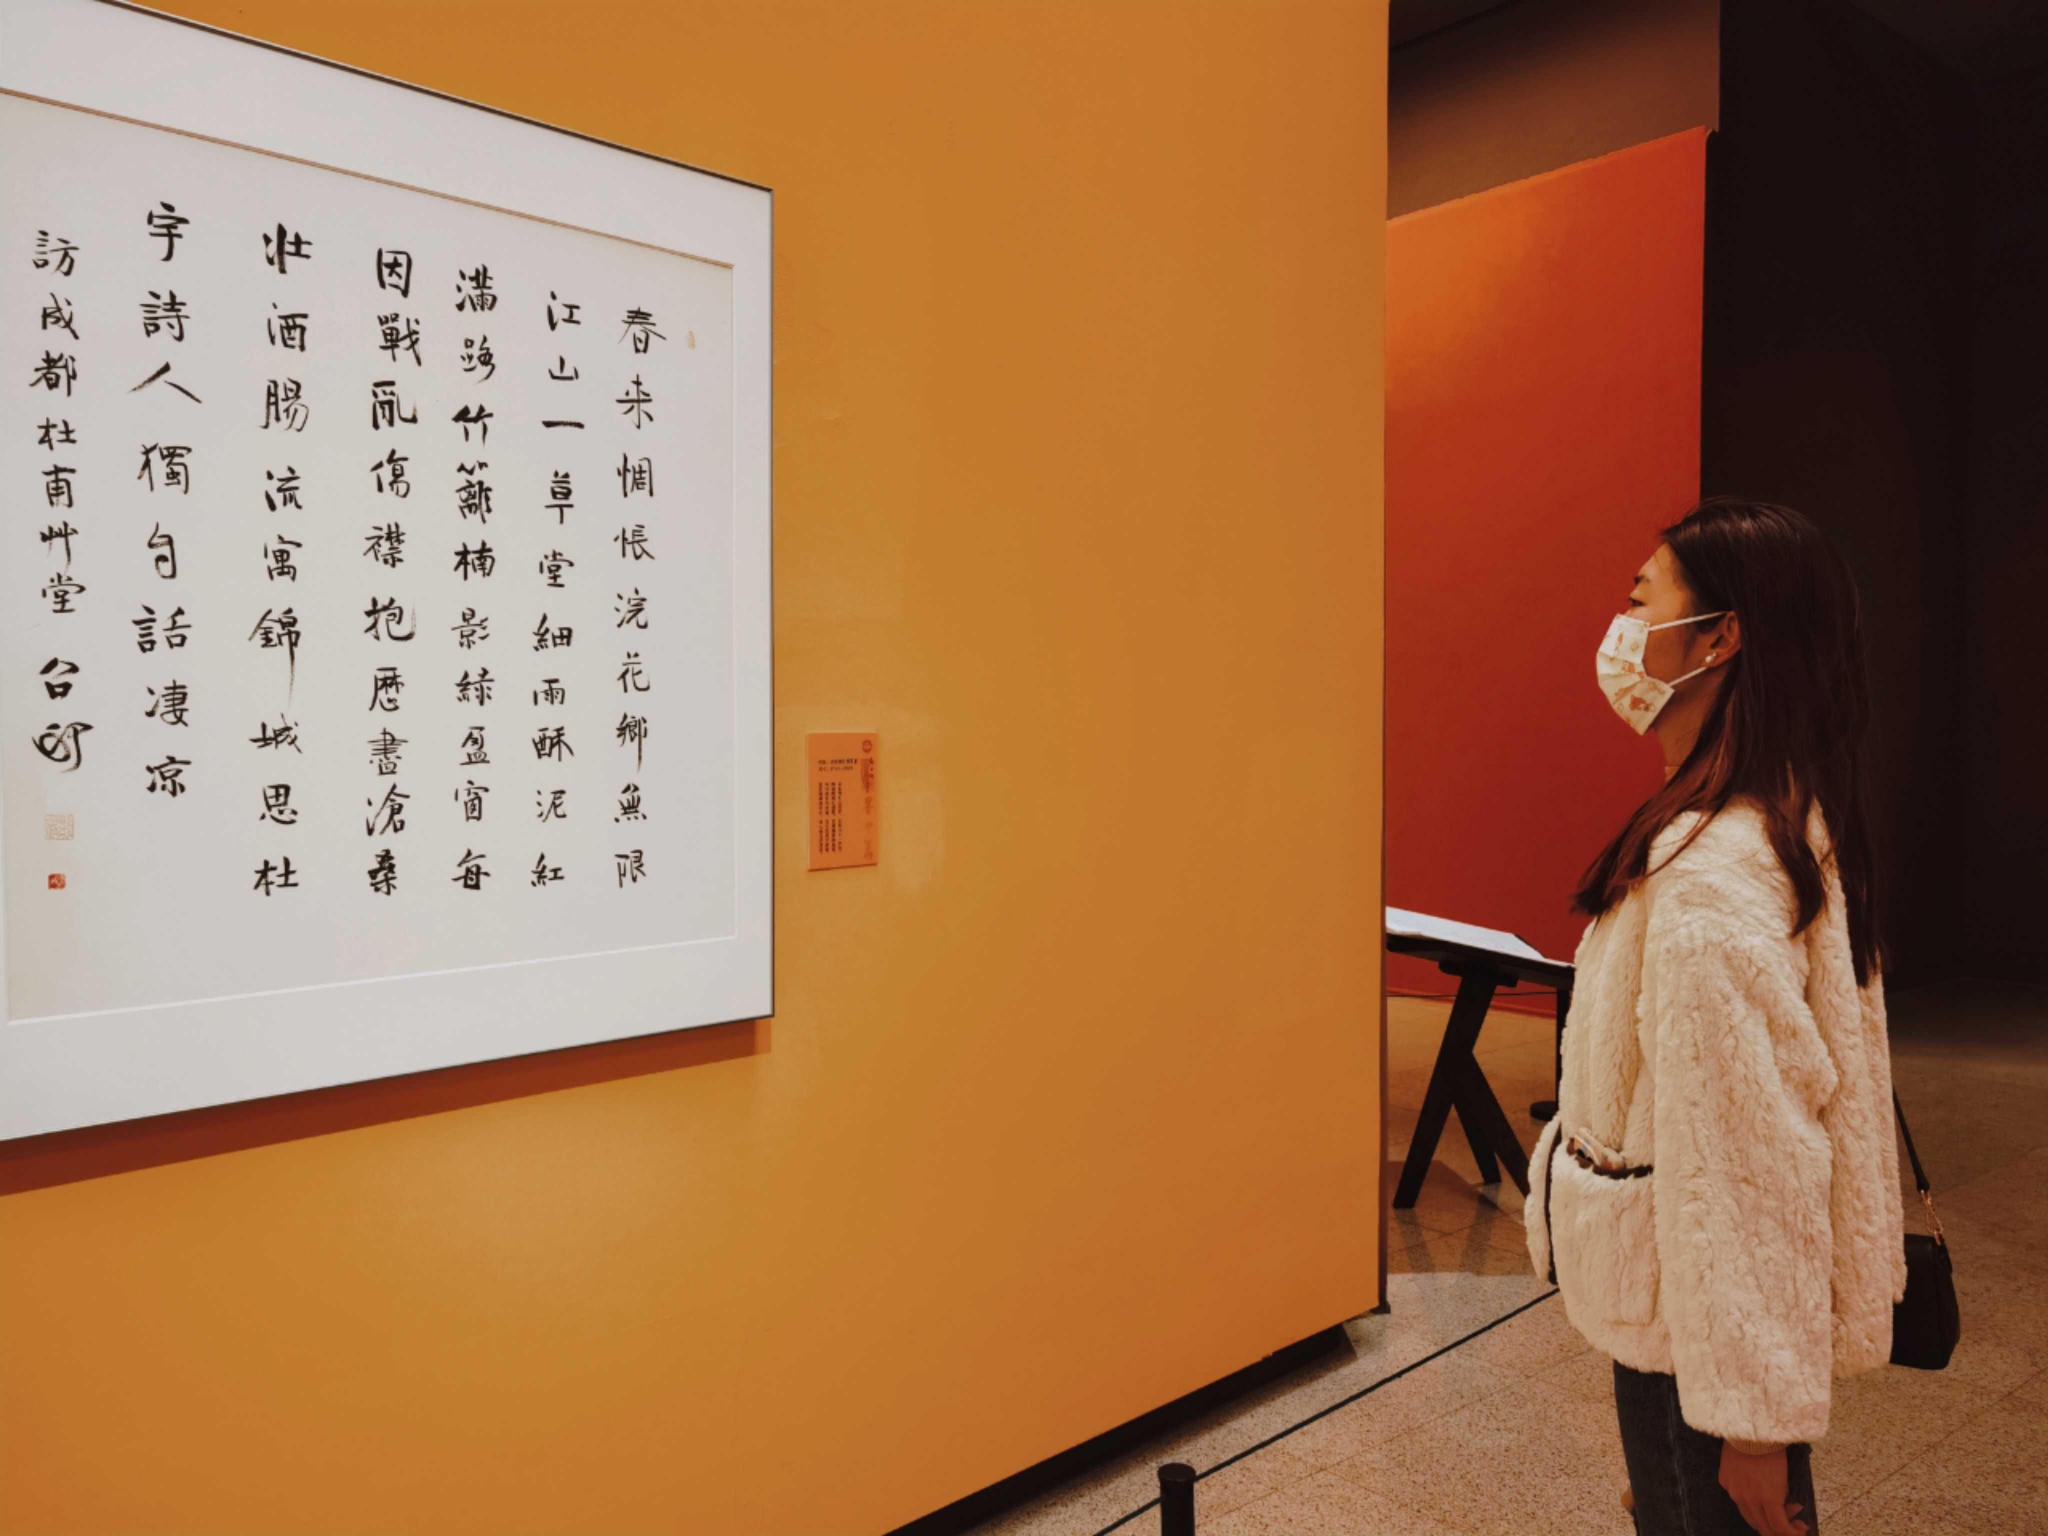 春来惆悵浣花鄉無限
江山一草堂細雨酥泥紅
滿路竹籬楠影綠盈窗每
因戰亂傷襟抱歷盡滄桑
壯酒腸流寓錦城思杜
宇詩人獨自話淒涼
訪成都杜甫艸堂